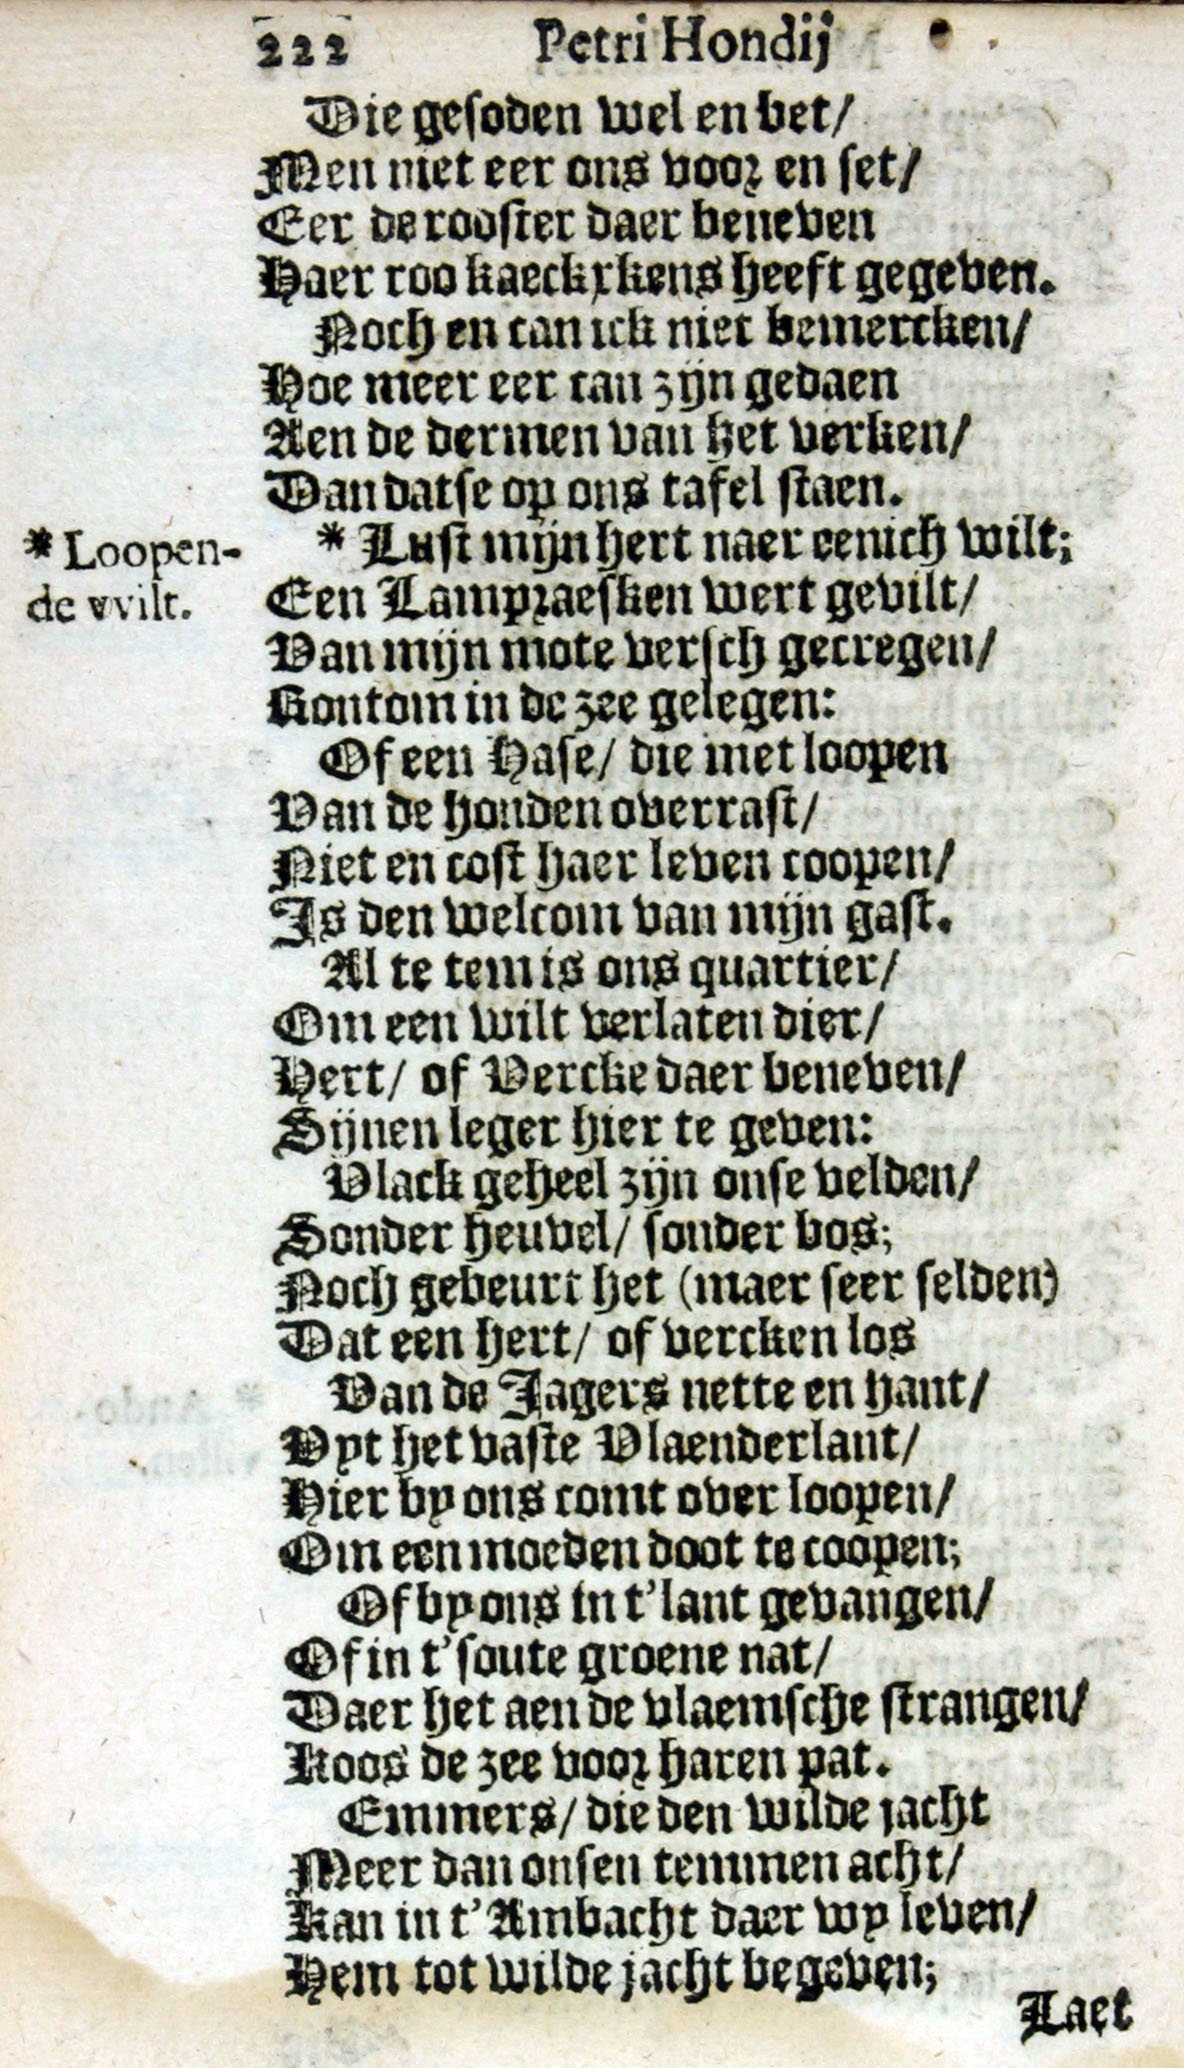 222 Petri Hondij
Die gesoden wel en vet/
Men niet eer ons voor en set/
Eer de rooster daer beneven
Haer roo kaeckxkens heeft gegeven.
Noch en can ick niet bemercken/
Hoe meer eer can zijn gedaen
Aen de dermen van het verken/
Dan datse op ons tafel staen.
* Lust mijn hert naer eenich wilt;
* Loopen-
de vvilt.
Een Lampraesken wert gevilt/
Van mijn mote versch gecregen/
Rontom in de zee gelegen:
Of een Hase/ die met loopen
Van de honden overrast/
Niet en cost haer leven coopen/
Is den welcom van mijn gast.
Al te tem is ons quartier/
Om een wilt verlaten dier/
Hert/ of Vercke daer beneven/
Sijnen leger hier te geven:
Vlack geheel zijn onse velden/
Sonder heuvel/ sonder bos;
Noch gebeurt het (maer seer selden)
Dat een hert/ of vercken los
Van de Jagers nette en hant/
Vyt het vaste Vlaenderlant/
Hier by ons comt over loopen/
Om een moeden doot te coopen;
Of by ons in t'lant gevangen/
Of in t'soute groene nat/
Daer het aen de vlaemsche strangen/
Koos de zee voor haren pat.
Emmers/ die den wilde jacht
Meer dan onsen temmen acht/
Kan in t'Ambacht daer wy leven/
Hem tot wilde jacht begeven;
Laet